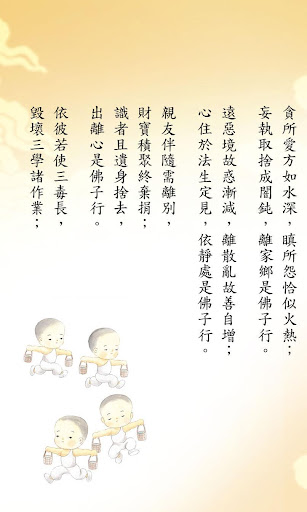 貪所愛方如水深，瞋所怨恰似火熱；
妄執取捨成闇鈍，離家鄉是佛子行。
遠惡境故惑漸減，離散亂故善自增；
心住於法生定見，依靜處是佛子行。
親友伴隨需離別，
財寶積聚終棄捐；
識者且遺身捨去，
出離心是佛子行。
依彼若使三毒長，
毀壞三學諸作業；